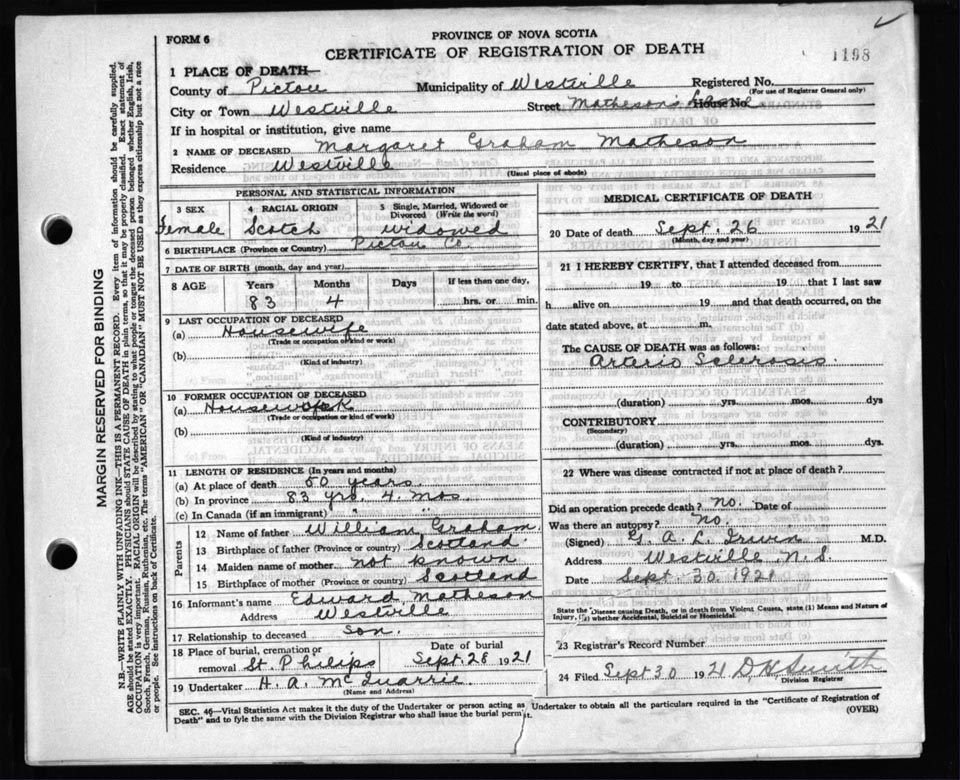 FORM 6
PROVINCE OF NOVA SCOTIA
CERTIFICATE OF REGISTRATION OF DEATH
1198
1 PLACE OF DEATH—
County of Pictou Municipality of Westville Registered No.
(For use of Registrar General only)
City or Town Westville Street Matheson's House No.
If in hospital or institution, give name
2 NAME OF DECEASED Margaret Graham Matheson
Residence Westville
(Usual place of abode)
PERSONAL AND STATISTICAL INFORMATION
3 SEX 4 RACIAL ORIGIN 5 Single, Married, Widowed or Divorced (Write the word)
Female Scotch widowed
6 BIRTHPLACE (Province or Country) Pictou Co.
7 DATE OF BIRTH (month, day and year)
8 AGE Years Months Days If less than one day,
83 4 hrs. or min.
9 LAST OCCUPATION OF DECEASED
(a) Housewife
(Trade or occupation or kind or work)
(b)
(Kind of industry)
10 FORMER OCCUPATION OF DECEASED
(a) Housework
(Trade or occupation or kind of work)
(b)
(Kind of Industry)
11 LENGTH OF RESIDENCE (In years and months)
(a) At place of death 50 years
(b) In province 83 yrs. 4. mos
(c) In Canada (if an immigrant) " "
Parents
12 Name of father William Graham
13 Birthplace of father (Province or country) Scotland
14 Maiden name of mother not known
15 Birthplace of mother (Province or country) Scotland
16 Informant's name Edward Matheson
Address Westville
17 Relationship to deceased son.
18 Place of burial, cremation or removal St. Philips Date of burial Sept. 28 1921
19 Undertaker H. A. McQuarrie
(Name and Address)
MEDICAL CERTIFICATE OF DEATH
20 Date of death Sept. 26 1921
(Month, day and year)
21 I HEREBY CERTIFY, that I attended deceased from
19 to 19 that I last saw
h alive on 19 and that death occurred, on
date stated above, at m.
The CAUSE OF DEATH was as follows:
Arterio Sclerosis
(duration) yrs. mos. dys
CONTRIBUTORY
(Secondary)
(duration) yrs. mos. dys.
22 Where was disease contracted if not at place of death?
Did an operation precede death? no. Date of
Was there an autopsy? no.
(Signed) G. A. L. Irwin M.D.
Address Westville N. S
Date Sept. 30. 1921
State the Disease causing Death, or in death from Violent Causes, state (1) Means and Nature of
Injury, (2) whether Accidental, Suicidal or Homicidal.
23 Registrar's Record Number
24 Filed Sept 30 1921 D H Smith
Division Registrar
SEC. 46—Vital Statistics Act makes it the duty of the Undertaker or person acting as Undertaker to obtain all the particulars required in the "Certificate of Registration of
Death" and to fyle the same with the Division Registrar who shall issue the burial permit.
(OVER)
MARGIN RESERVED FOR BINDING
N.B.—WRITE PLAINLY WITH UNFADING INK—THIS IS A PERMANENT RECORD. Every item of information should be carefully supplied.
AGE should be stated EXACTLY. PHYSICIANS should STATE CAUSE OF DEATH in plain terms, so that it may be properly classified. Exact statement of
OCCUPATION is very important. RACIAL ORIGIN will be described by stating to what people or tongue the deceased person belonged whether English, Irish,
Scotch, French, German, Russian, Ruthenian, etc. The terms "AMERICAN" or "CANADIAN" MUST NOT BE USED as they express citizenship but not a race
or people. See instructions on back of Certificate.